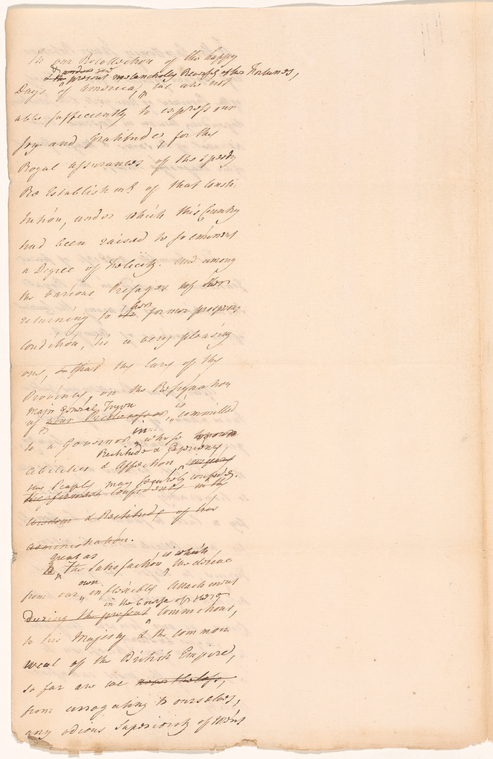 In our Recollection of the happy
& under the present melancholy Reverse of her Fortunes,
Days of America, we are not
able sufficiently to express our
Joy and Gratitude, for the
Royal assurances of the speedy
Re Establishmt. of that Consti
tution, under which this Country
had been raised to so eminent
a Degree of Felicity. And among
the various Presages of her
returning to her former prosperous
condition, it is a very pleasing
one, that the care of this
Province, on the Resignation
Major General Tryon
of is committed
to a Governor, in whose
Rectitude & Sagacity,
Abilities & Affection
the People may
confidence in the
& Rectitude of his
administration.
great as is which
the Satisfaction we derive
own
from our inflexible Attachment
in the Course of
During the present Commotions,
to his Majesty & the common
weal of the British Empire,
so far are we
from arrogating to ourselves,
any odious Superiority of Merit